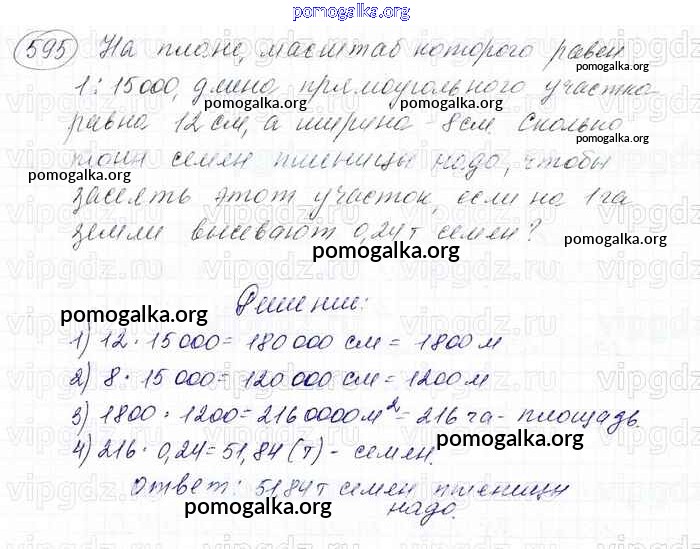 pomogalka.org
595 На плане, масштаб которого равен
1 : 15000, длина прямоугольного участка
равна 12 см, а ширина - 8 см. Сколько
тонн семен пшеницы надо, чтобы
засеять этот участок, если на 1 га
земли высевают 0,24 т семен?
pomogalka.org
pomogalka.org
pomogalka.org
pomogalka.org
pomogalka.org
pomogalka.org
Решение:
pomogalka.org
1) 12 · 15 000 = 180 000 см = 1800 м
2) 8 · 15 000 = 120 000 см = 1200 м
3) 1800 · 1200 = 2160000 м² = 216 га - площадь.
4) 216 · 0,24 = 51,84 (т) - семен.
pomogalka.org
Ответ: 51,84 т семен пшеницы
надо.
pomogalka.org